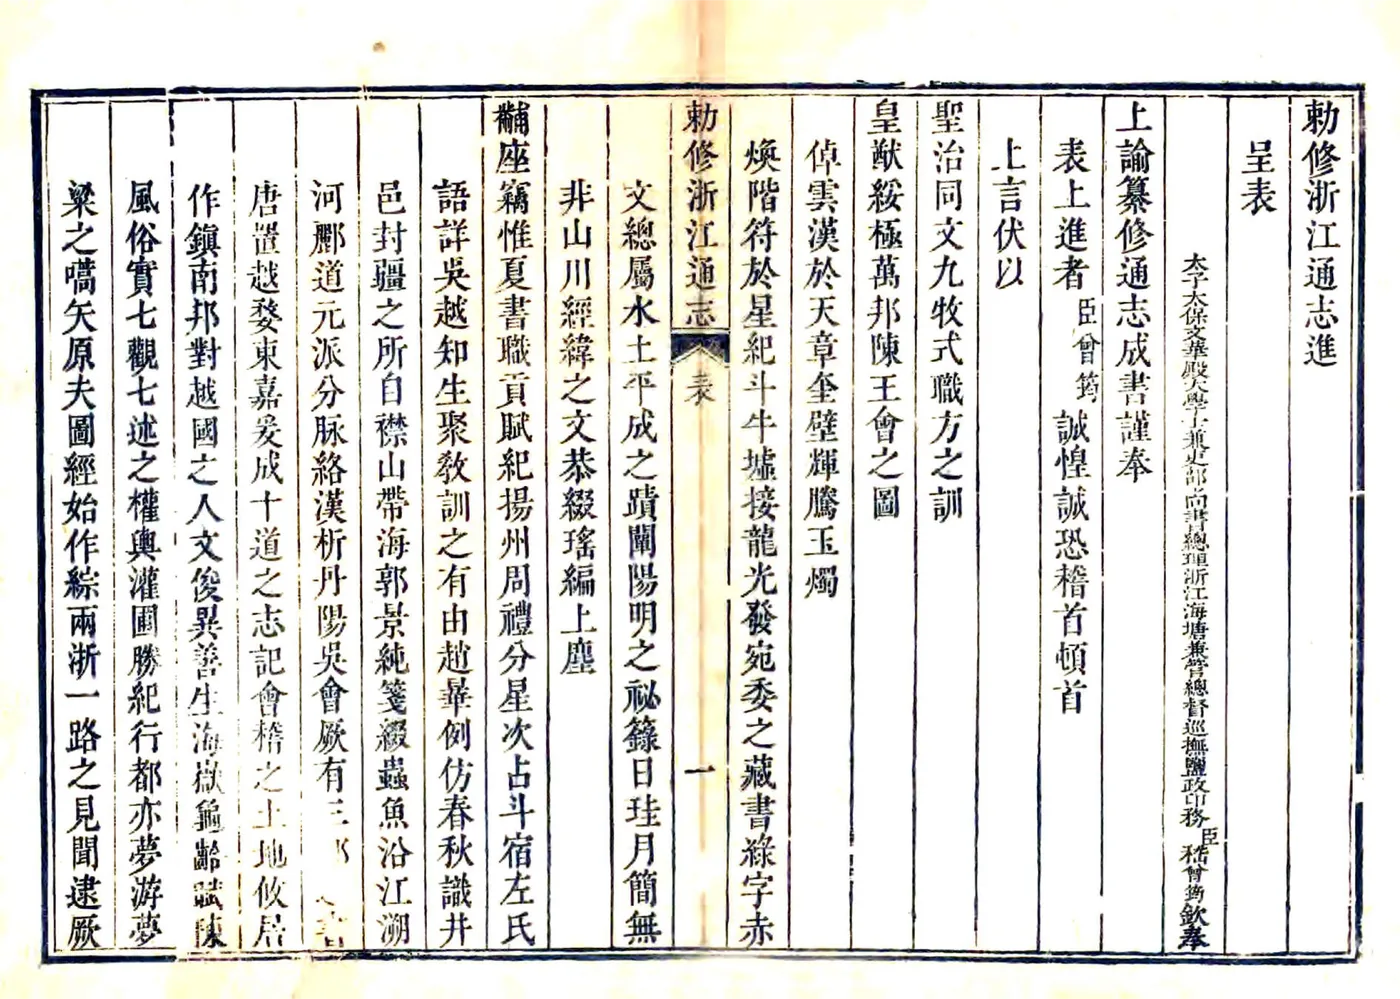 勅修浙江通志進
呈表
太子太保文華殿大學士兼吏部尚書總理浙江海塘兼管總督巡撫鹽政印務臣嵇曾筠欽奉
上諭纂修通志成書謹奉
表上進者臣曾筠誠惶誠恐稽首頓首
上言伏以
聖治同文九牧式職方之訓
皇猷綏極萬邦陳王會之圖
倬雲漢於天章奎壁輝騰玉燭
煥階符於星紀斗牛墟接龍光發宛委之藏書綠字赤
勅修浙江通志 表 一
文總屬水土平成之蹟闡陽明之祕籙日珪月簡無
非山川經緯之文恭綴瑤編上塵
黼座竊惟夏書職貢賦紀揚州周禮分星次占斗宿左氏
語詳吳越知生聚敎訓之有由趙曄例仿春秋識井
邑封疆之所自襟山帶海郭景純箋綴蟲魚沿江溯
河酈道元派分脉絡漢析丹陽吳會厥有三書
唐置越婺東嘉爰成十道之志記會稽之土地攸居
作鎭南邦對越國之人文俊異善生海嶽龜齡賦陳
風俗實七觀七述之權輿灌圃勝紀行都亦夢游夢
粱之嚆矢原夫圖經始作綜兩浙一路之見聞逮厥